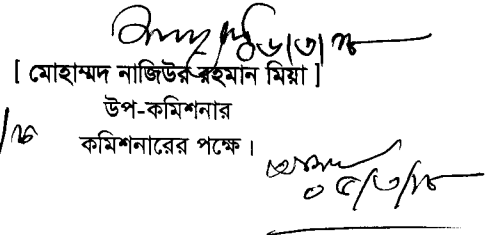 [ মোহাম্মদ নাজিউর রহমান মিয়া ]
উপ-কমিশনার
কমিশনারের পক্ষে।
০৫/৩/